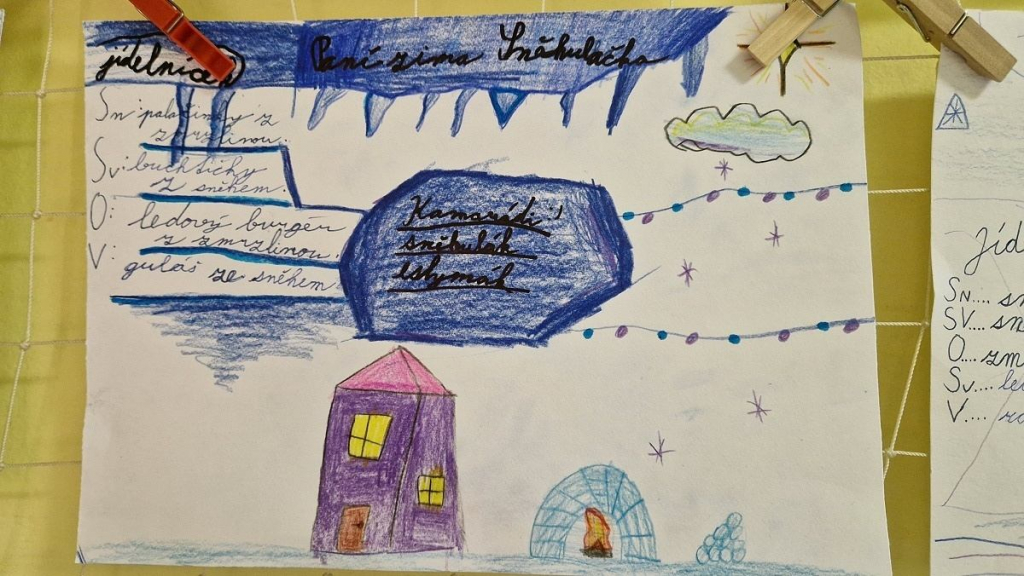 jídelníček
Paní zima Sněhulačka
Sn: palačinky z
zmrzlinou.
Sv: buchtičky
z sněhem.
O: ledový burgér
z zmrzlinou.
V: guláš ze sněhem.
Kamarádi:
sněhulák
eskymák
Jíd
Sn.... sn
Sv.... sn
O.... zm
Sv.... le
V....